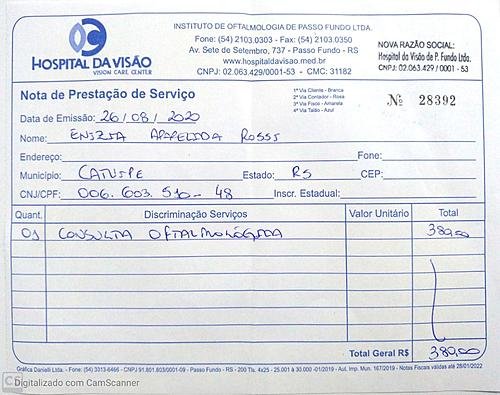 INSTITUTO DE OFTALMOLOGIA DE PASSO FUNDO LTDA.
Fone: (54) 2103.0303 - Fax: (54) 2103.0350
Av. Sete de Setembro, 737 - Passo Fundo - RS
www.hospitaldavisao.med.br
CNPJ: 02.063.429/0001-53 - CMC: 31182
HOSPITAL DA VISÃO
VISION CARE CENTER
NOVA RAZÃO SOCIAL:
Hospital da Visão de P. Fundo Ltda.
CNPJ: 02.063.429/0001 - 53
Nota de Prestação de Serviço
1ª Via Cliente - Branca
2ª Via Contador - Rosa
3ª Via Fisco - Amarela
4ª Via Talão - Azul
Nº 28392
Data de Emissão: 26/08/2020
Nome: APARECIDA ROSSI
Endereço: Fone:
Município: CATUIPE Estado: RS CEP:
CNJ/CPF: 006.603.510-48 Inscr. Estadual:
Quant. Discriminação Serviços Valor Unitário Total
01 CONSULTA OFTALMOLÓGICA 380,00
Total Geral R$ 380,00
Gráfica Danielli Ltda. - Fone: (54) 3313-6466 - CNPJ 91.801.803/0001-09 - Passo Fundo - RS - 200 Tls. 4x25 - 25.001 à 30.000 -01/2019 - Aut. Imp. Mun. 167/2019 - Notas Fiscais válidas até 28/01/2022
Digitalizado com CamScanner